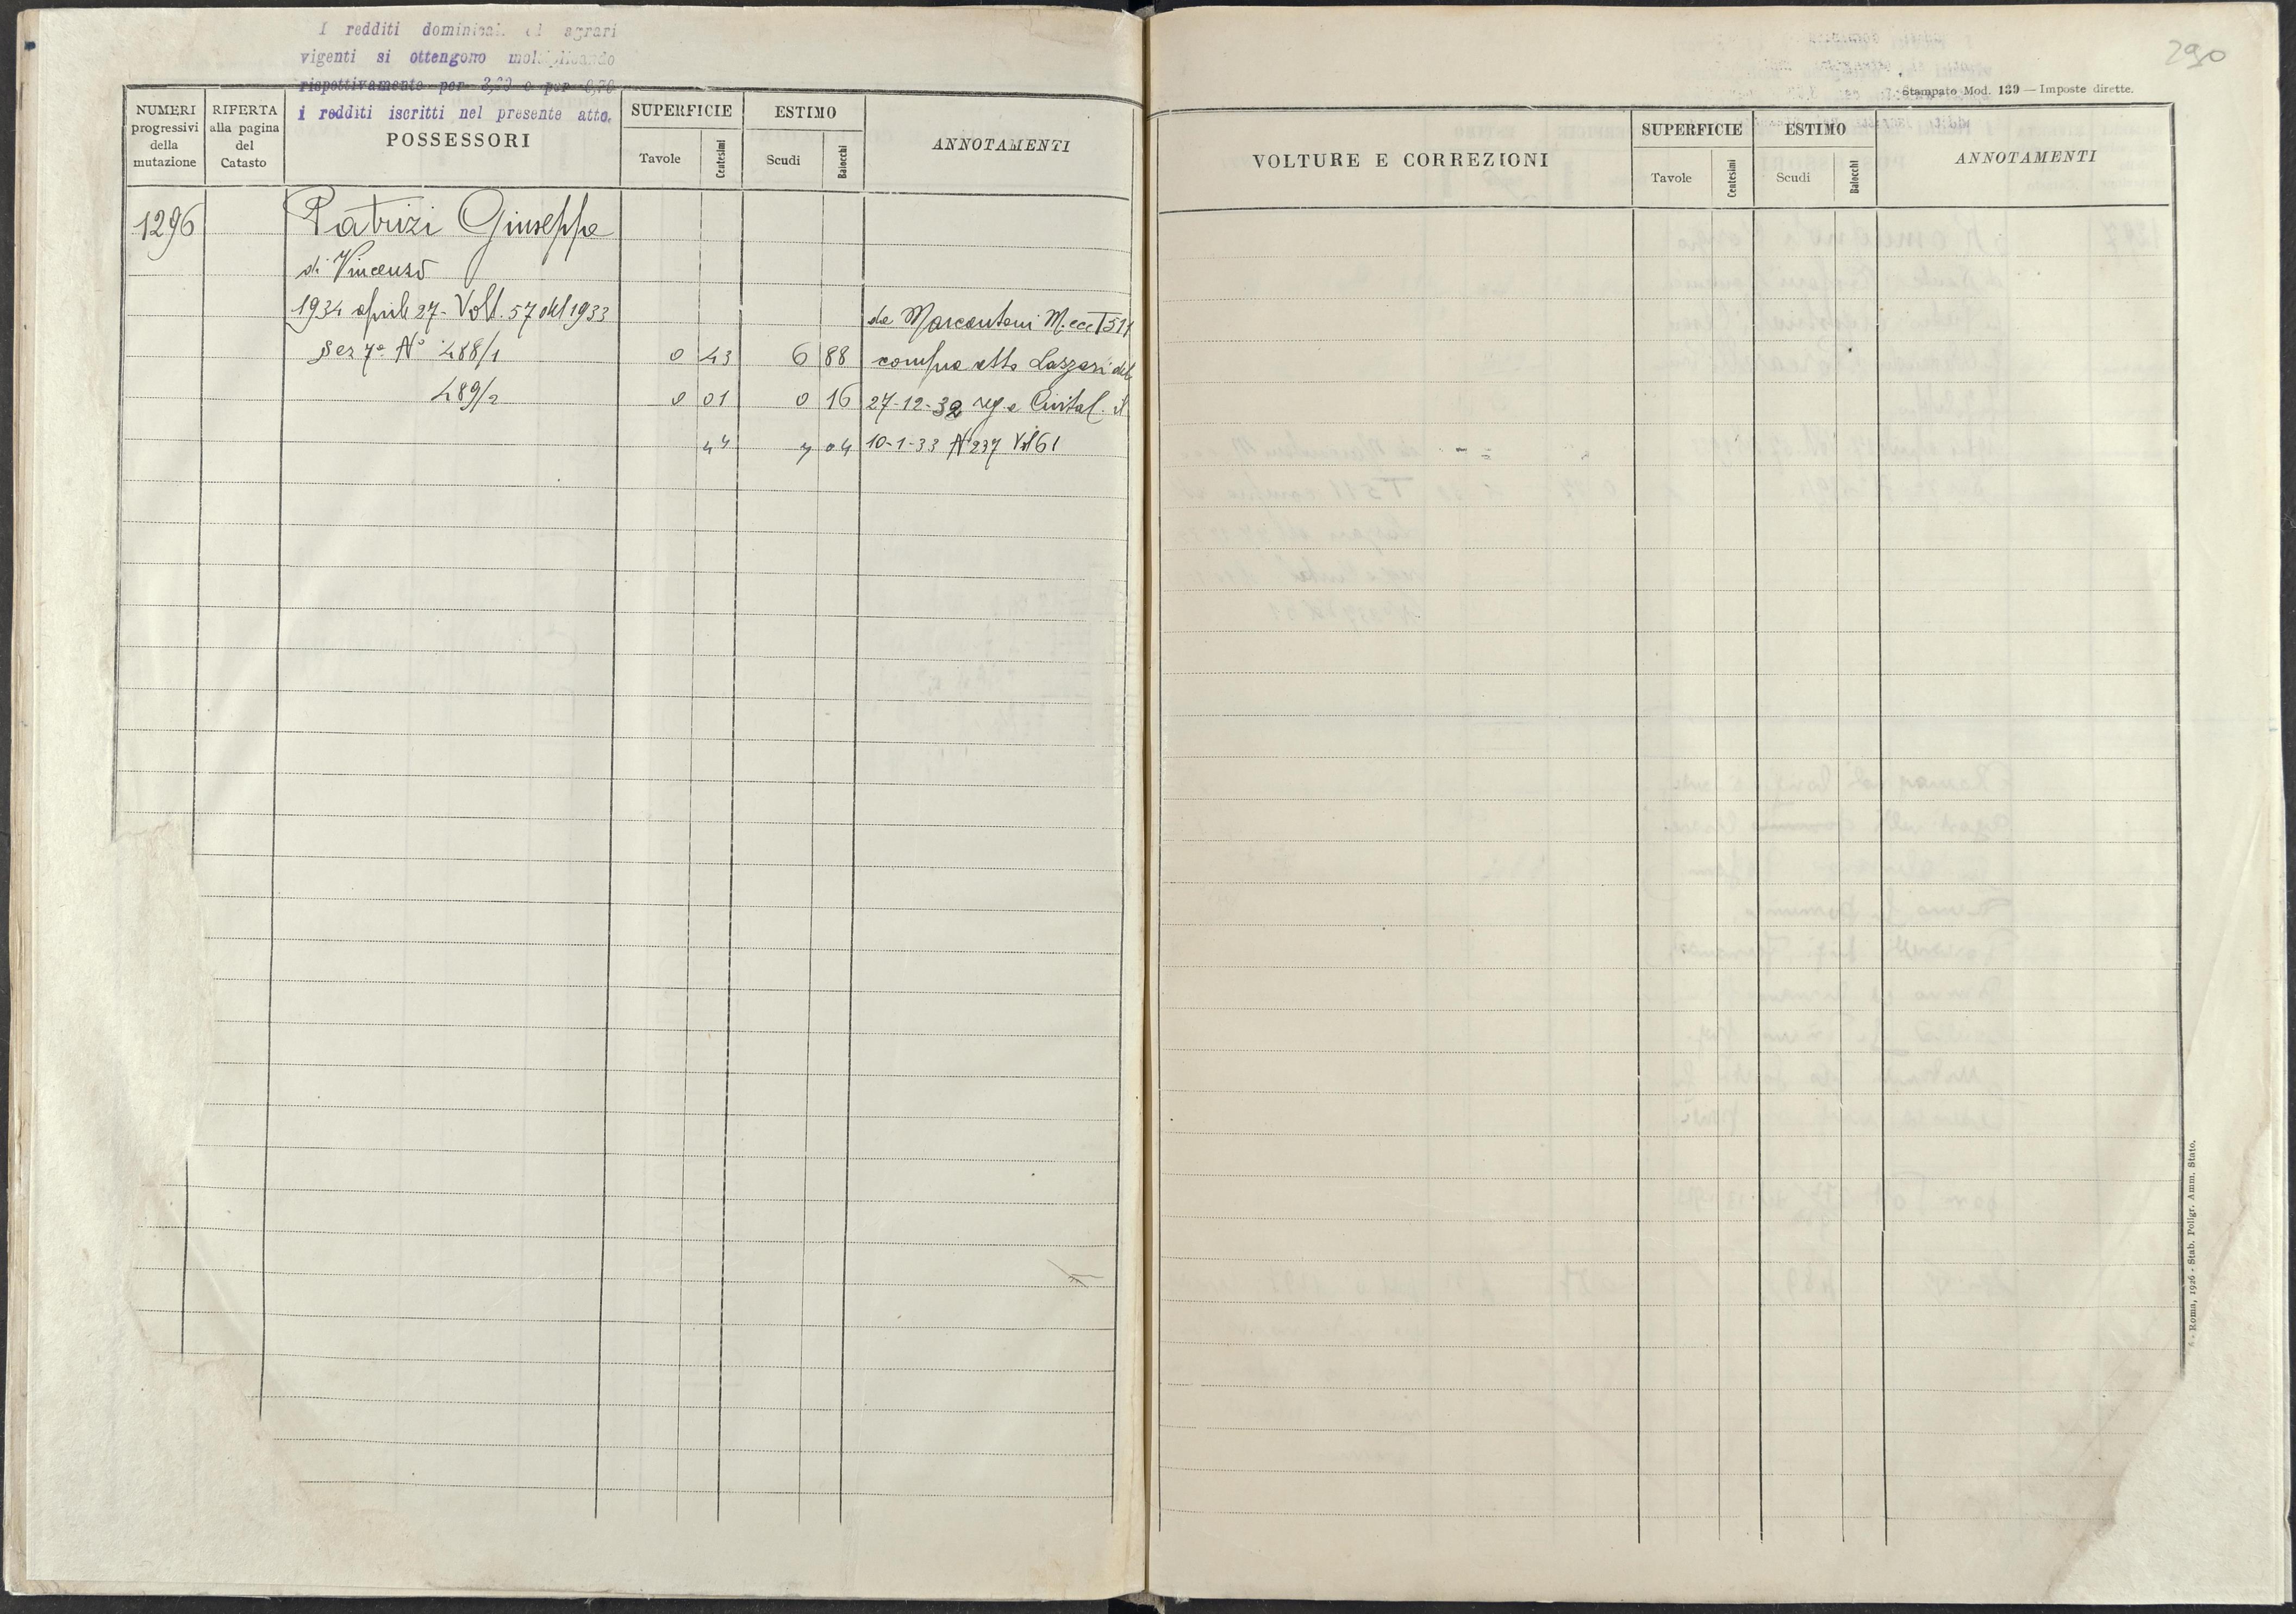 I redditi dominicali ed agrari
vigenti si ottengono moltiplicando
rispettivamente per 3,20 e per 0,70
i redditi iscritti nel presente atto.
NUMERI progressivi della mutazione
RIFERTA alla pagina del Catasto
POSSESSORI
SUPERFICIE
Tavole
Centesimi
ESTIMO
Scudi
Baiocchi
ANNOTAMENTI
1296 Patrizi Giuseppe
di Vincenzo
1934 aprile 27 - Volt. 57 del 1933 da Marcantoni M. ecc T 511
Sez 7a N° 488/1 0 43 6 88 compra atto Lazzari del
489/2 0 01 0 16 27-12-32 reg a Civital. il
44 7 04 10-1-33 N 237 Vol 61
290
Stampato Mod. 139 — Imposte dirette.
VOLTURE E CORREZIONI
SUPERFICIE
Tavole
Centesimi
ESTIMO
Scudi
Baiocchi
ANNOTAMENTI
Roma, 1926 - Stab. Poligr. Amm. Stato.